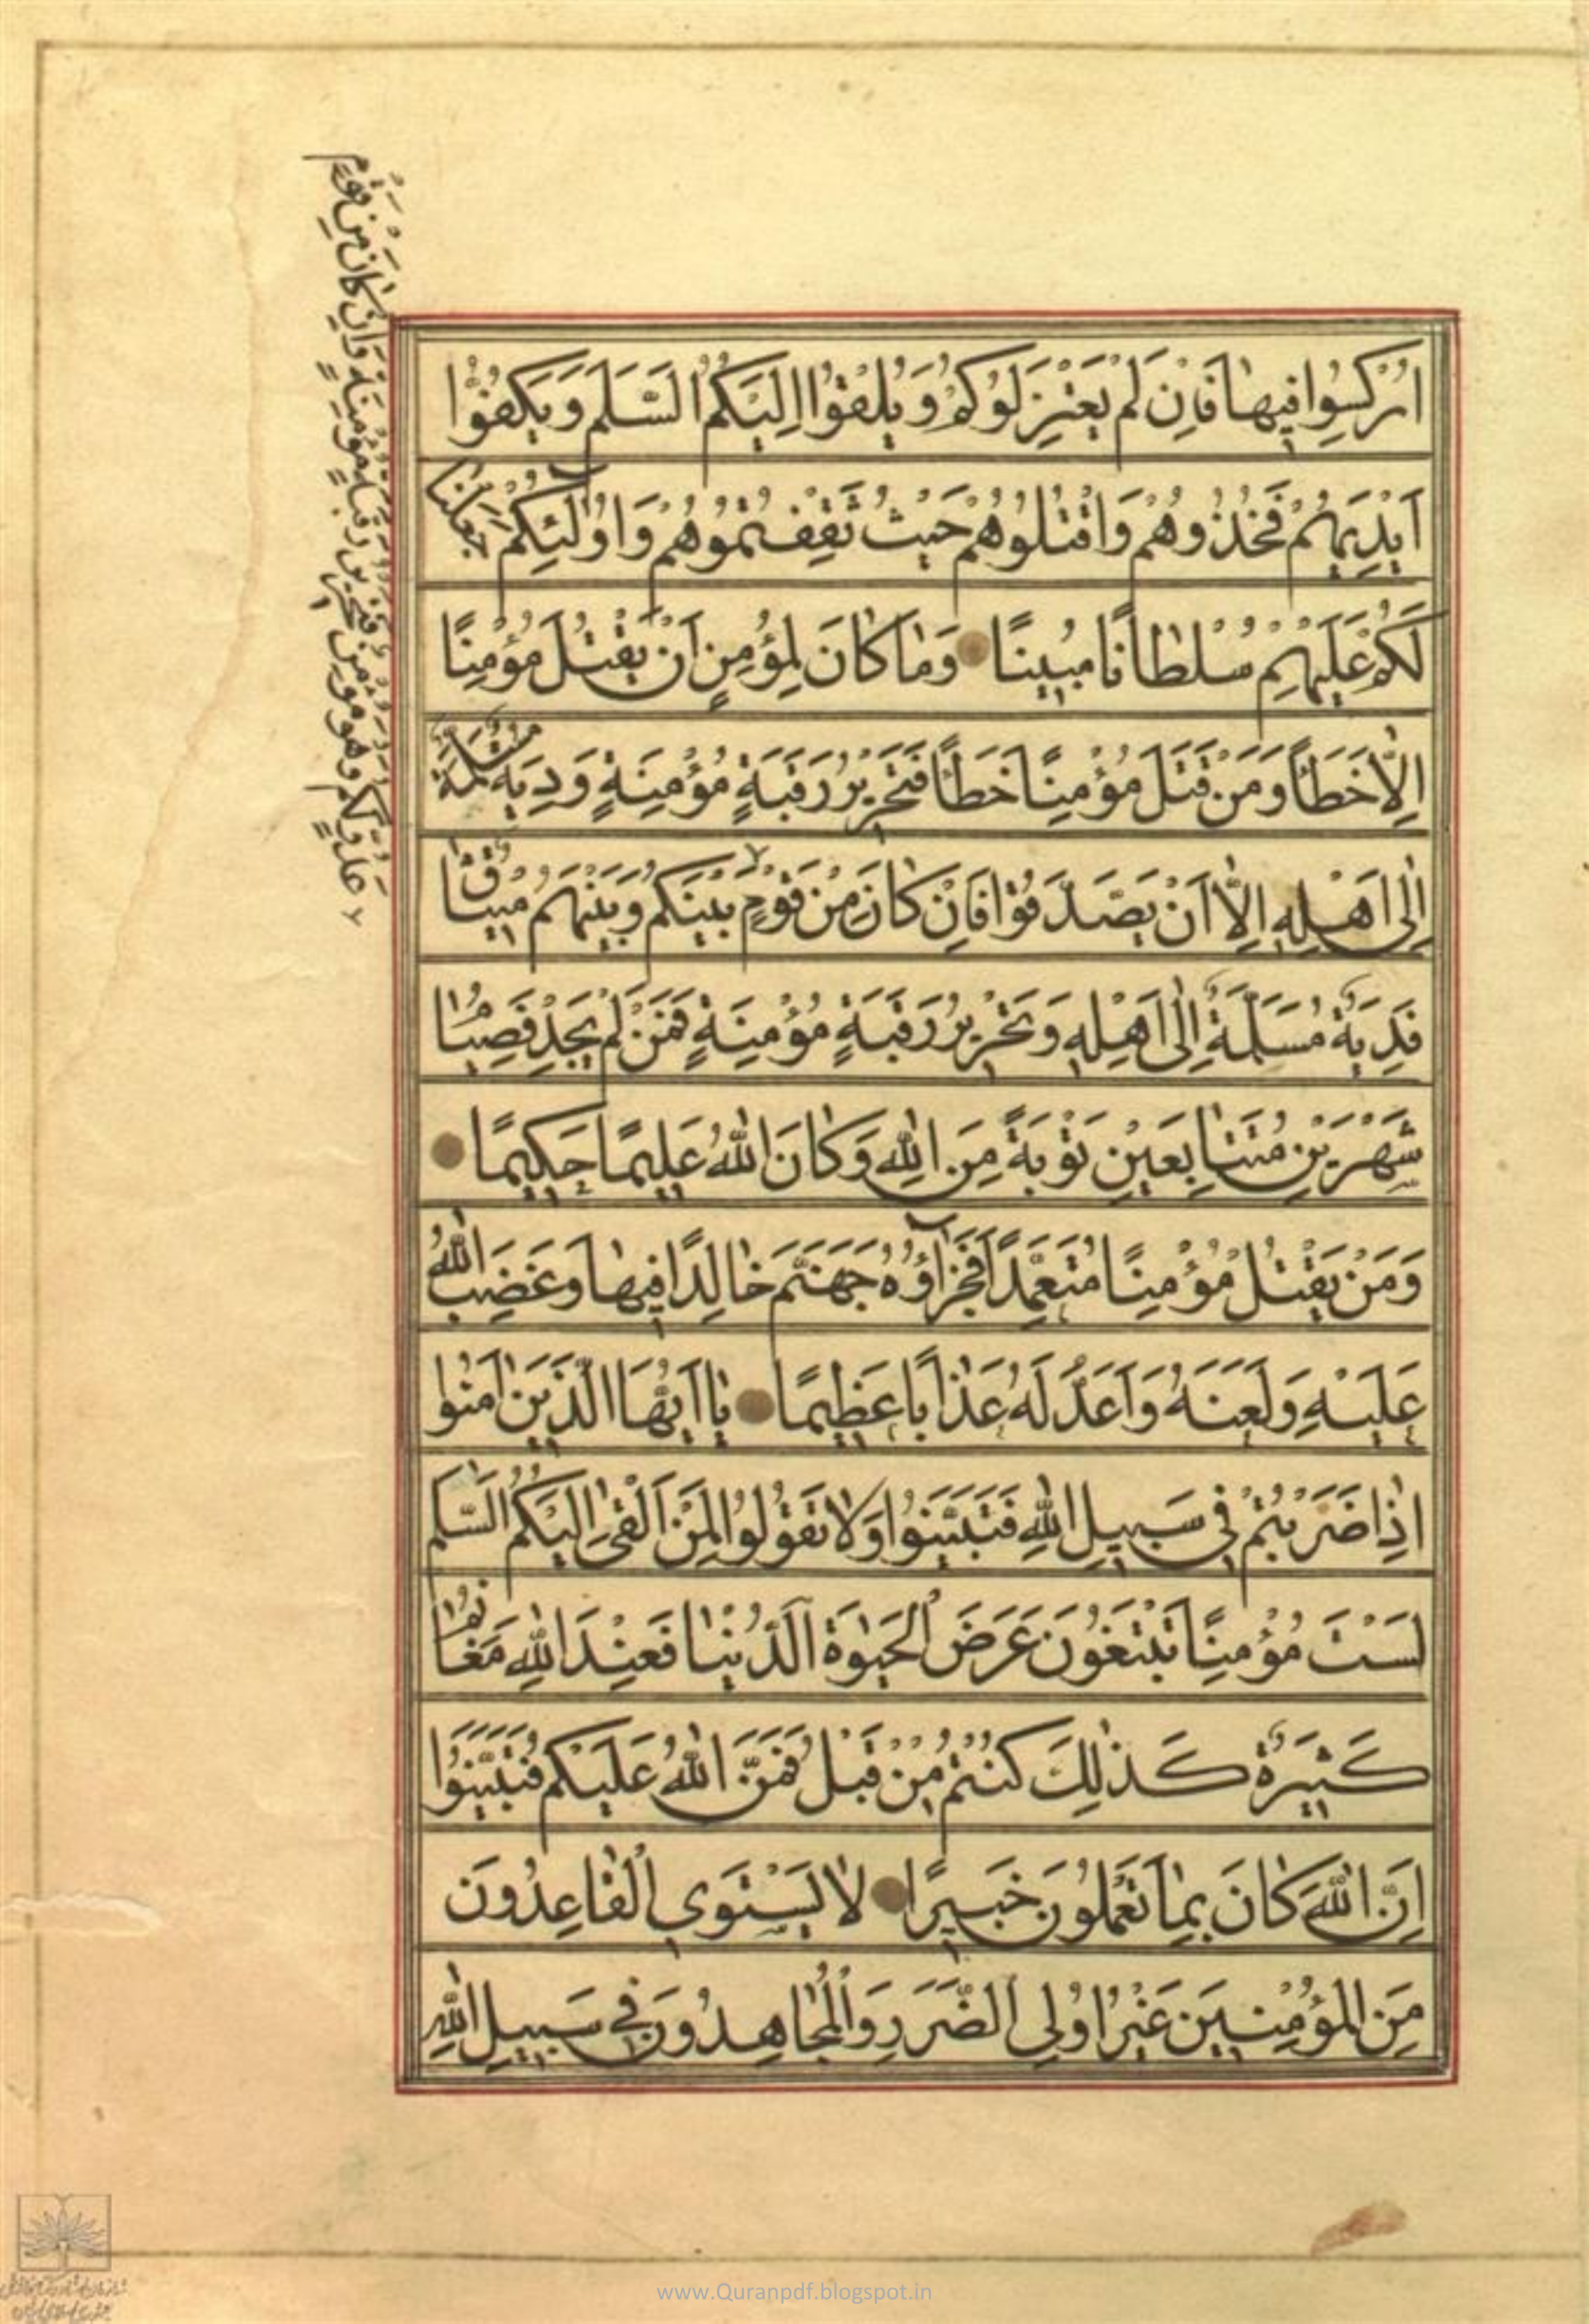 اُرْكِسُوا فِيهَا فَاِنْ لَمْ يَعْتَزِلُوكُمْ وَيُلْقُوْا اِلَيْكُمُ السَّلَمَ وَيَكُفُّوْا
اَيْدِيَهُمْ فَخُذُوهُمْ وَاقْتُلُوهُمْ حَيْثُ ثَقِفْتُمُوهُمْ وَاُولٰٓئِكُمْ جَعَلْنَا
لَكُمْ عَلَيْهِمْ سُلْطَانًا مُبِينًا وَمَا كَانَ لِمُؤْمِنٍ اَنْ يَقْتُلَ مُؤْمِنًا
اِلَّا خَطَأً وَمَنْ قَتَلَ مُؤْمِنًا خَطَأً فَتَحْرِيرُ رَقَبَةٍ مُؤْمِنَةٍ وَدِيَةٌ مُسَلَّمَةٌ
اِلٰى اَهْلِهِ اِلَّا اَنْ يَصَّدَّقُوْا فَاِنْ كَانَ مِنْ قَوْمٍ ٧ بَيْنَكُمْ وَبَيْنَهُمْ مِيثَاقٌ
فَدِيَةٌ مُسَلَّمَةٌ اِلٰى اَهْلِهِ وَتَحْرِيرُ رَقَبَةٍ مُؤْمِنَةٍ فَمَنْ لَمْ يَجِدْ فَصِيَامُ
شَهْرَيْنِ مُتَتَابِعَيْنِ تَوْبَةً مِنَ اللهِ وَكَانَ اللهُ عَلِيمًا حَكِيمًا
وَمَنْ يَقْتُلْ مُؤْمِنًا مُتَعَمِّدًا فَجَزَآؤُهُ جَهَنَّمُ خَالِدًا فِيهَا وَغَضِبَ اللهُ
عَلَيْهِ وَلَعَنَهُ وَاَعَدَّ لَهُ عَذَابًا عَظِيمًا يَا اَيُّهَا الَّذِينَ اٰمَنُوا
اِذَا ضَرَبْتُمْ فِي سَبِيلِ اللهِ فَتَبَيَّنُوا وَلَا تَقُولُوا لِمَنْ اَلْقٰى اِلَيْكُمُ السَّلَمَ
لَسْتَ مُؤْمِنًا تَبْتَغُونَ عَرَضَ الْحَيٰوةِ الدُّنْيَا فَعِنْدَ اللهِ مَغَانِمُ
كَثِيرَةٌ كَذٰلِكَ كُنْتُمْ مِنْ قَبْلُ فَمَنَّ اللهُ عَلَيْكُمْ فَتَبَيَّنُوا
اِنَّ اللهَ كَانَ بِمَا تَعْمَلُونَ خَبِيرًا لَا يَسْتَوِي الْقَاعِدُونَ
مِنَ الْمُؤْمِنِينَ غَيْرُ اُولِي الضَّرَرِ وَالْمُجَاهِدُونَ فِي سَبِيلِ اللهِ
٧ عَدُوٍّ لَكُمْ وَهُوَ مُؤْمِنٌ فَتَحْرِيرُ رَقَبَةٍ مُؤْمِنَةٍ وَاِنْ كَانَ مِنْ قَوْمٍ
www.Quranpdf.blogspot.in